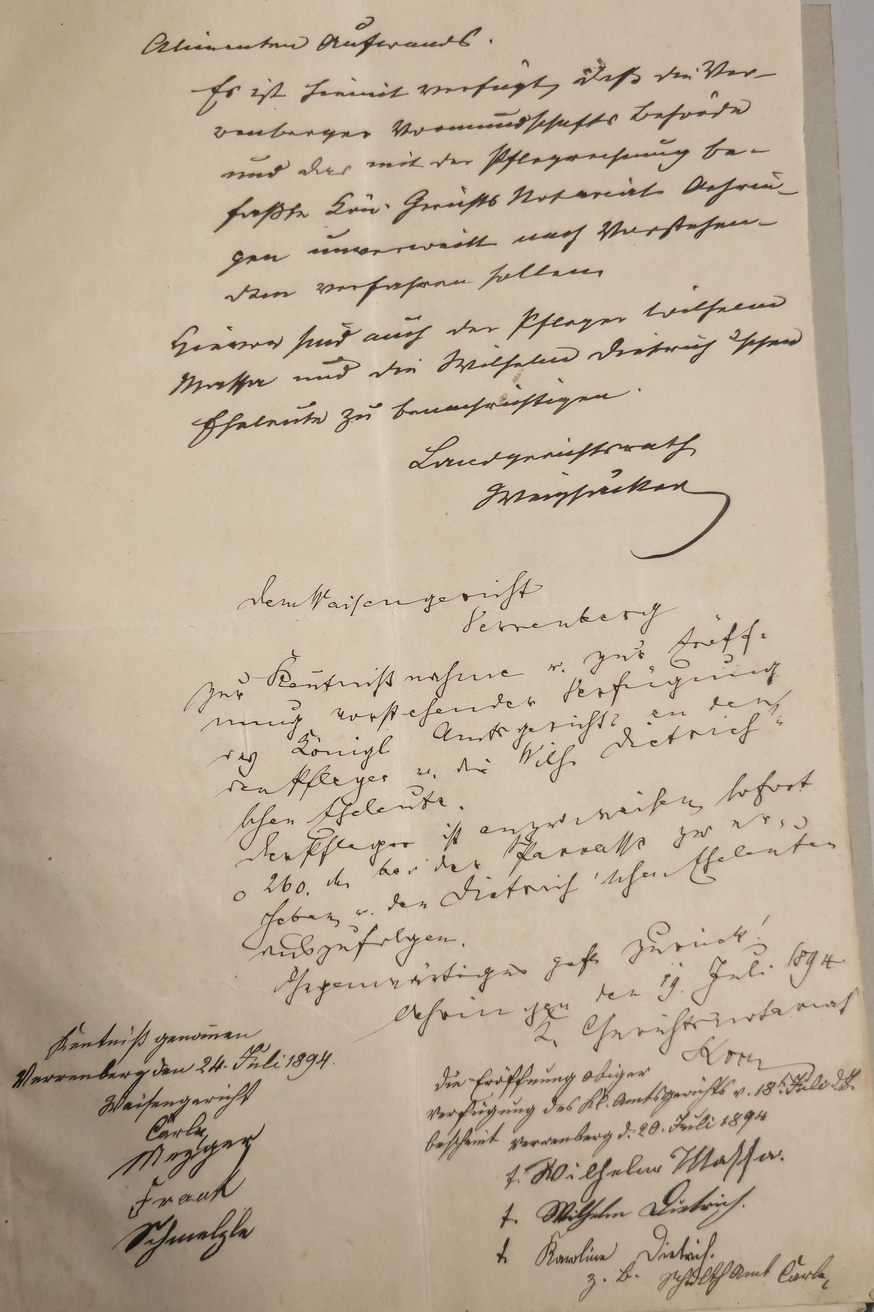 Alimenten Aufwands.
Es ist hiemit verfügt, daß die Ver-
renberger Vormundschafts Behörde
und das mit der Pflegrechnung be-
faßte Kön. Gerichts Notariat Oehrin-
gen unverweilt nach Vorstehen-
dem verfahren sollen.
Hievon sind auch der Pfleger Wilhelm
Massa und die Wilhelm Dietrich'schen
Eheleute zu benachrichtigen.
Landgerichtsrath
Weizsäcker
dem Waisengericht
Verrenberg
zur Kentnißnahme u. zur Eröff-
nung vorstehender Verfügung
des Königl Amtsgerichts an den
den Pfleger u. die Wilh Dietrich'
schen Eheleute.
der Pfleger ist anzuweisen, sofort
260. M bei der zu er-
heben u. den Dietrich'schen Eheleuten
auszufolgen.
Gegenwärtiges geht zurück!
Oehringen den 19. Juli 1894
K. Gerichtsnotariat
Korn
Kentniß genomen
Verrenberg den 24. Juli 1894.
Waisengericht
Carle
Mezger
Frank
Schmelzle
die Eröffnung obiger
Verfügung des Kl. Amtsgerichts v. 18t Juli d. J.
bescheint Verrenberg d. 20. Juli 1894
t. Wilhelm Massa.
t. Wilhelm Dietrich.
t. Karoline Dietrich.
z. B. Schulth Amt Carle,